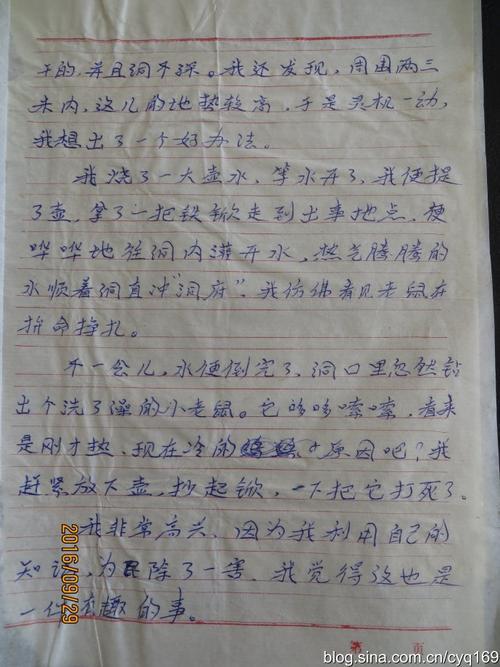 干的,并且洞不深。我还发现,周围两三
米内,这儿的地势较高,于是灵机一动,
我想出了一个好办法。
我烧了一大壶水,等水开了,我便提
了壶,拿了一把铁锨走到出事地点,
哗哗地往洞内灌开水,热气腾腾的
水顺着洞直冲“洞府”。我仿佛看见老鼠在
拚命挣扎。
不一会儿,水便倒完了,洞口里忽然钻
出个洗了澡的小老鼠。它哆哆嗦嗦,看来
是刚才热,现在冷的原因吧?我
赶紧放下壶,抄起锨,一下把它打死了。
我非常高兴,因为我利用自己的
知识,为民除了一害,我觉得这也是
一件有趣的事。
2016/09/29
第 页
blog.sina.com.cn/cyq169